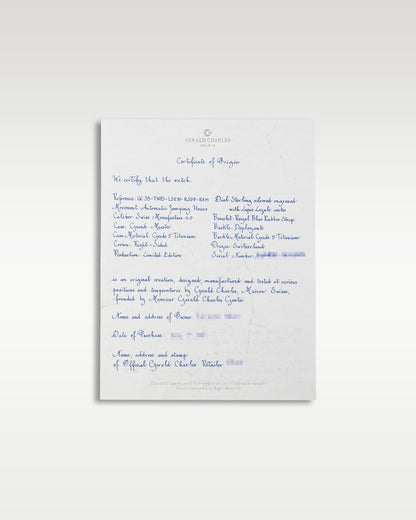 GERALD CHARLES
GENÈVE
Certificate of Origin
We certify that the watch:
Movement: Automatic Jumping Hours
Caliber: Swiss Manufacture
Case: Gerald Maestro
Case Material: Grade 5 Titanium
Crown: Right-Sided
Production: Limited Edition
Dial: Sterling silvered engraved
with
Bracelet: Royal Blue Rubber Strap
Buckle: Deployante
Buckle Material: Grade 5 Titanium
Origin: Switzerland
Serial Number:
is an original creation, designed, manufactured and tested at various
positions and temperatures by Gerald Charles, Maison Suisse,
founded by Monsieur Gerald Charles Genta.
Name and address of Owner:
Date of Purchase:
Name, address and stamp
of Official Gerald Charles Retailer